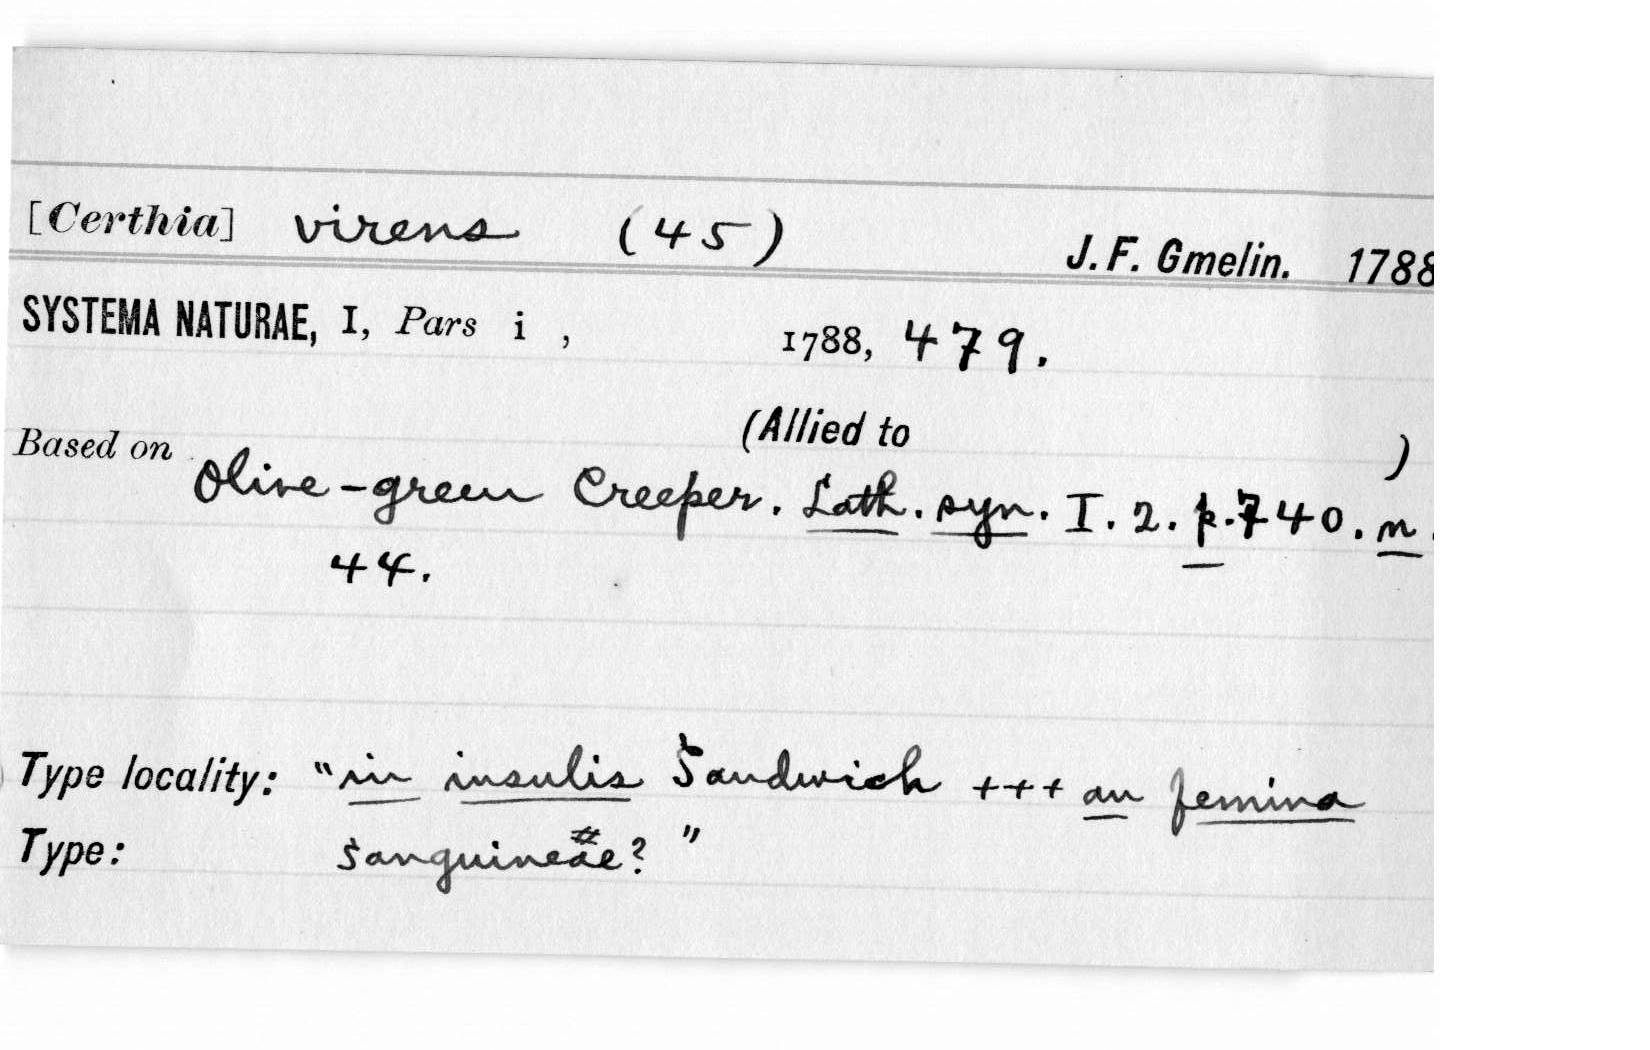 [Certhia] virens (45) J. F. Gmelin. 1788
SYSTEMA NATURAE, I, Pars i , 1788, 479.
(Allied to )
Based on Olive-green Creeper. Lath. syn. I. 2. p. 740. n.
44.
Type locality: "in insulis Sandwich +++ an femina
Type: sanguineae? "